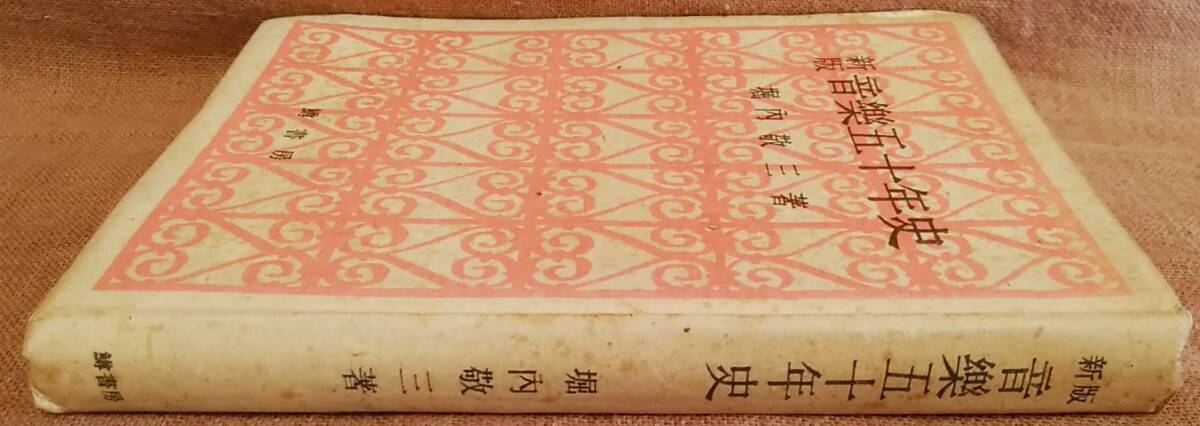 新版
音樂五十年史
堀内敬三著
鱒書房
新版
音樂五十年史
堀内敬三著
鱒書房